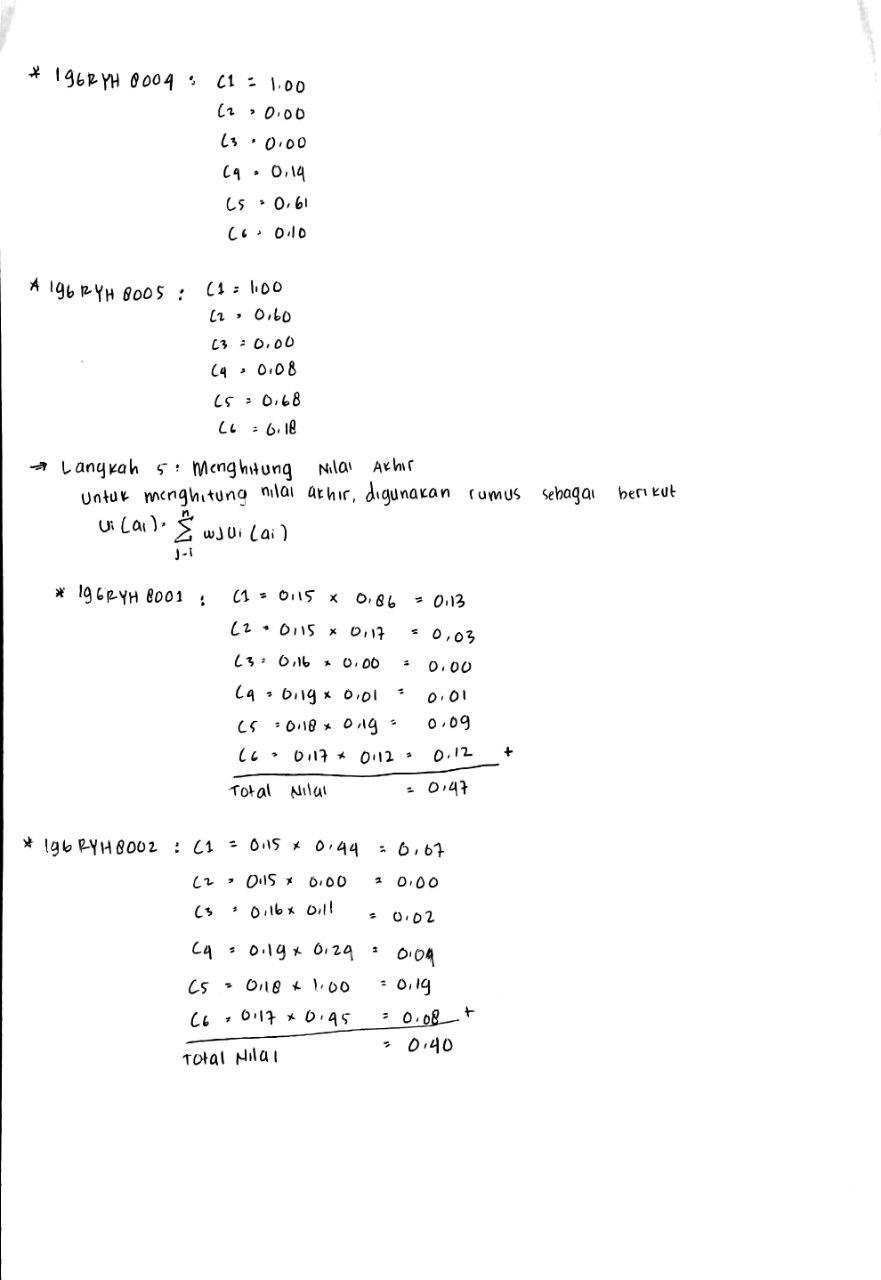 * 196RYH8004 : C1 = 1.00
C2 = 0.00
C3 = 0.00
C4 = 0,14
C5 = 0,61
C6 = 0.10
* 196RYH8005 : C1 = 1.00
C2 = 0,60
C3 = 0.00
C4 = 0.08
C5 = 0,68
C6 = 0.18
→ Langkah 5 : Menghitung Nilai Akhir
Untuk menghitung nilai akhir, digunakan rumus sebagai berikut
Ui (ai) = n∑j=i wJUi (ai)
* 196RYH8001 : C1 = 0,15 x 0,86 = 0,13
C2 = 0,15 x 0,17 = 0,03
C3 = 0,16 x 0.00 = 0.00
C4 = 0,19 x 0,01 = 0.01
C5 = 0,18 x 0,19 = 0,09
C6 = 0,17 x 0,12 = 0.12 +
Total Nilai = 0,47
* 196RYH8002 : C1 = 0,15 x 0,44 = 0,07
C2 = 0,15 x 0,00 = 0,00
C3 = 0,16 x 0,11 = 0,02
C4 = 0.19 x 0,24 = 0,04
C5 = 0,18 x 1.00 = 0,19
C6 = 0,17 x 0,45 = 0.08 +
Total Nilai = 0,40